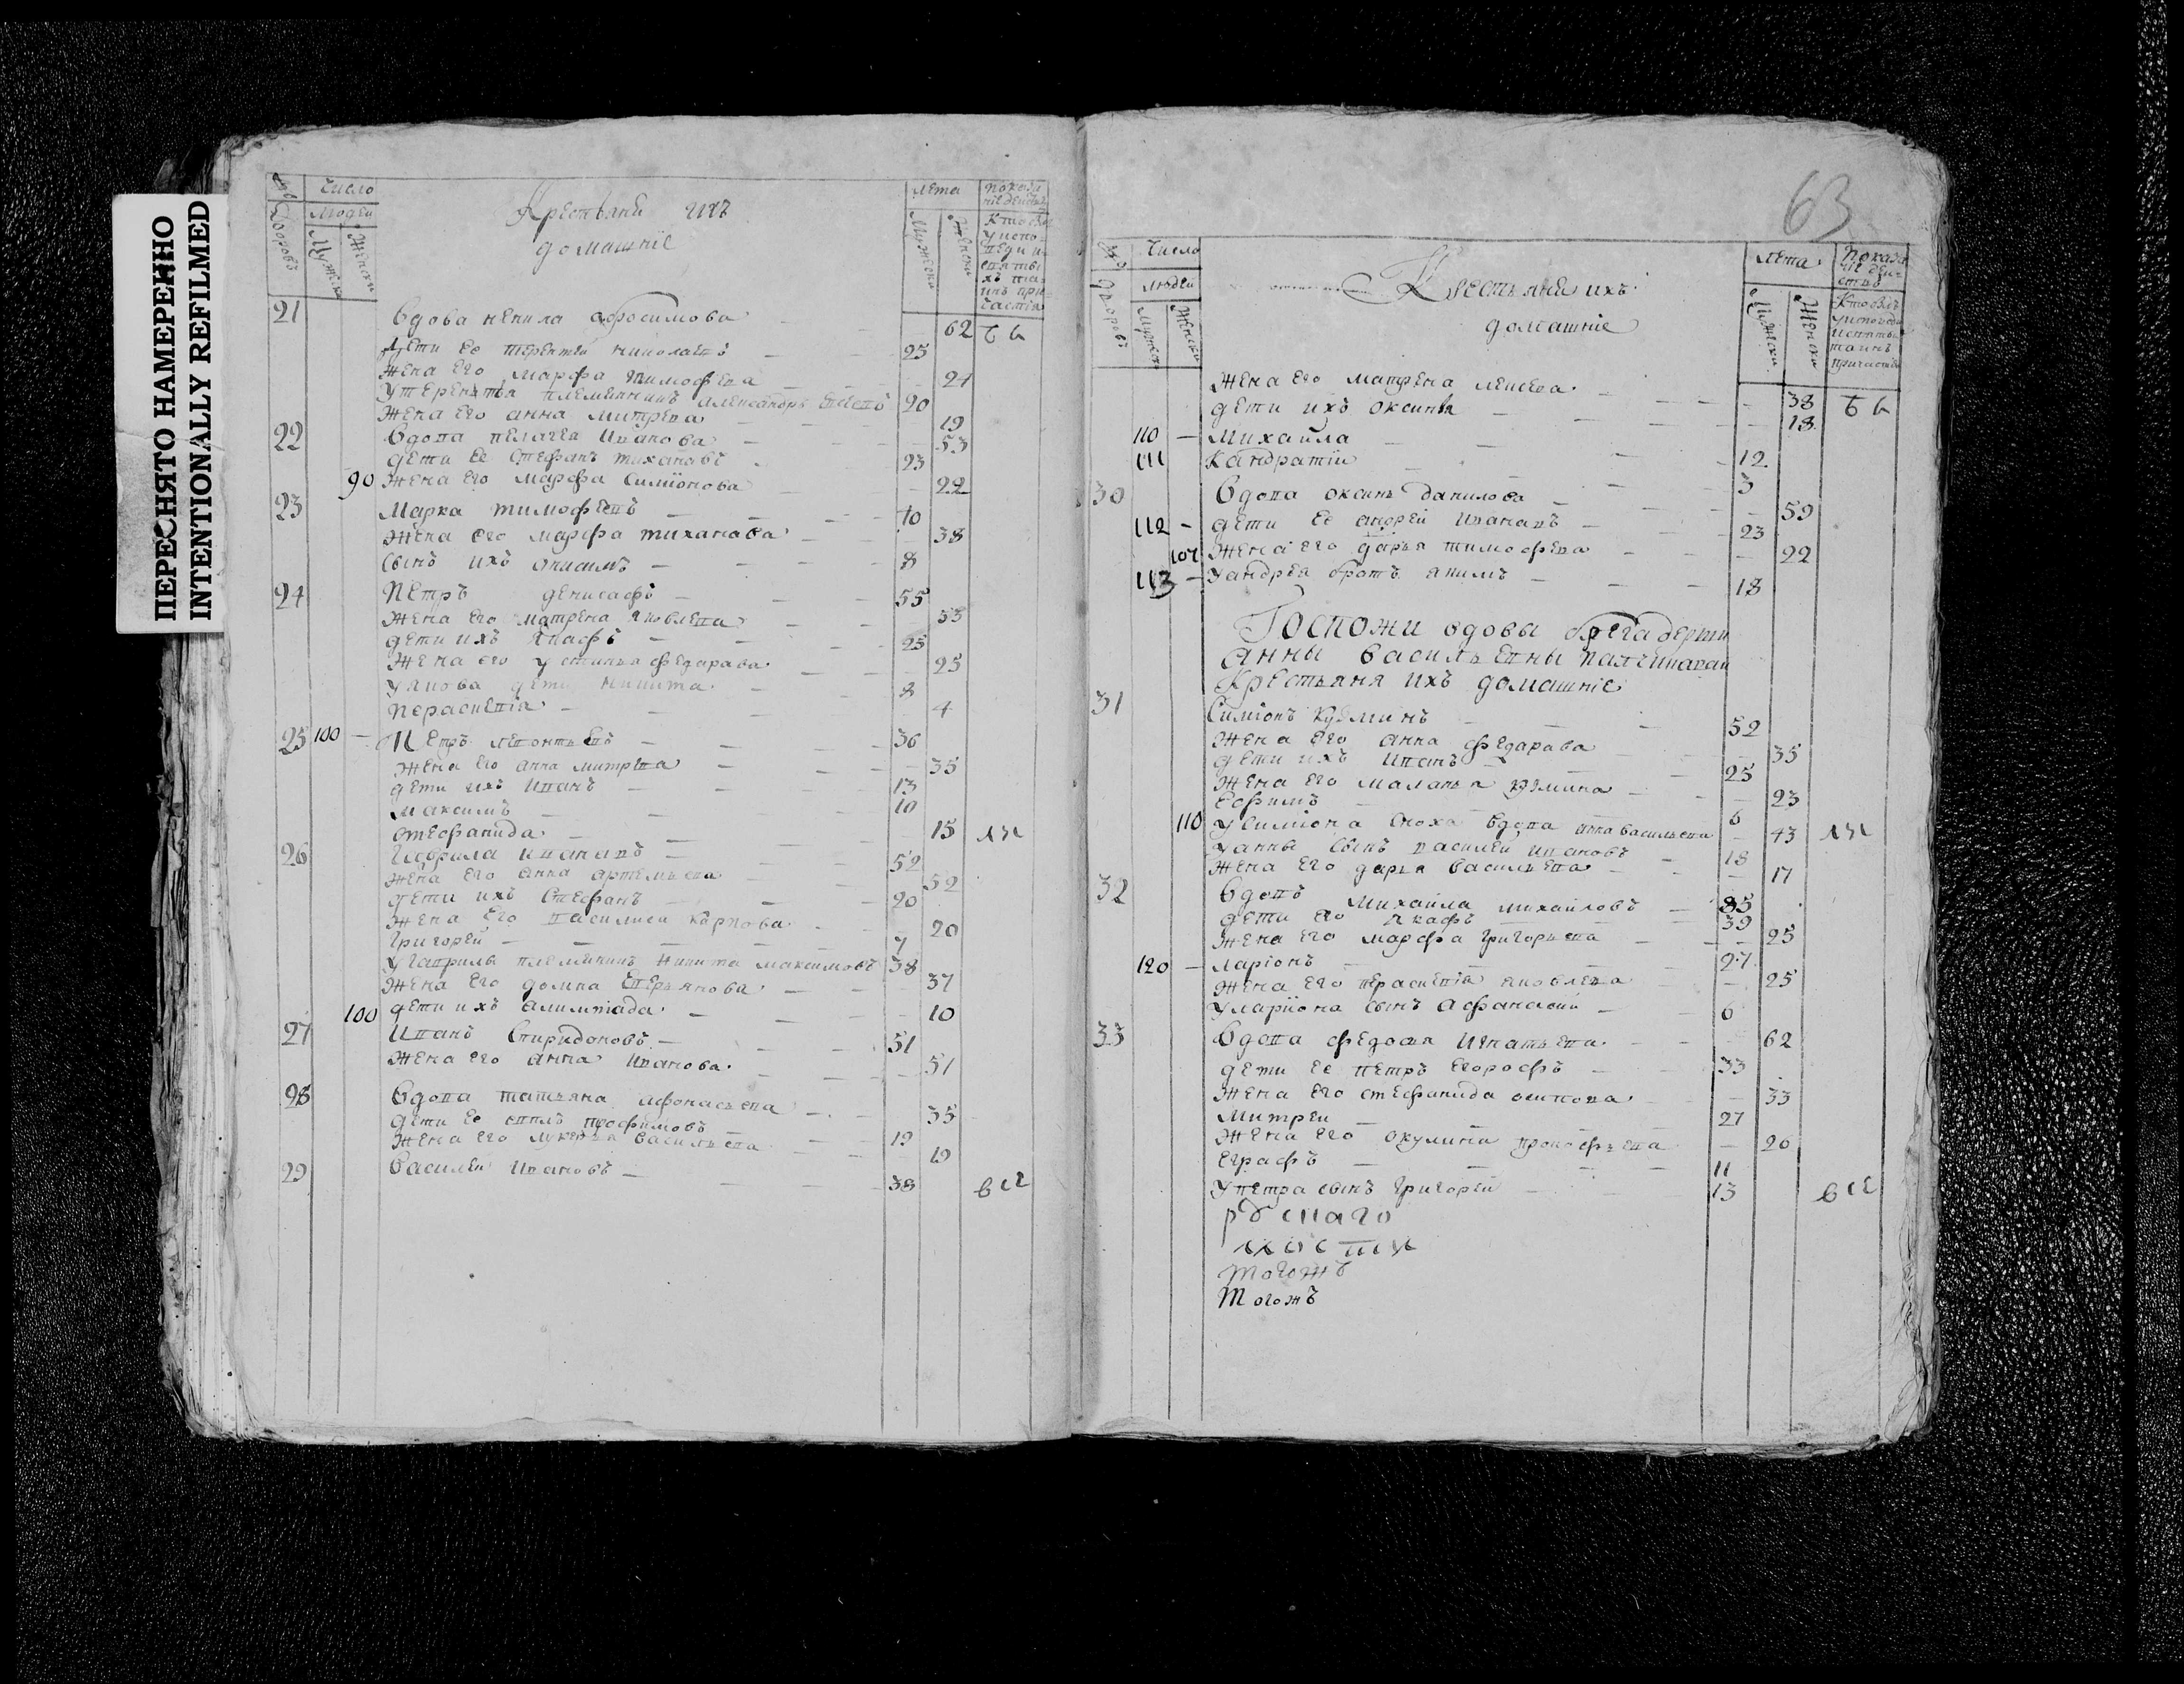 ПЕРЕСНЯТО НАМЕРЕННО
INTENTIONALLY REFILMED
Число
Людей
Дворовъ
Мужеска
Женски
Крестьяне ихъ
домашніе
Лета
Мужески
Женски
21 Вдова ненила афросимова 62
Дети ее терентеи николаевъ 25
Жена его марфа тимофева 24
У терентья племянникъ александръ 20
Жена его анна митрева 19
22 Вдова пелагея Иванова 53
дети ее Стефанъ тихановъ 23
90 Жена его марфа Симионова 22
23 Марка тимофевъ 40
Жена его марфа тиханава 38
Сынъ ихъ онисимъ 8
24 Петръ денисафъ 55
Жена его матрена яковлева 53
дети ихъ якафъ 25
Жена его устинья федарава 25
У якова дети никита 8
Пераскевия 4
25 100 Петръ левонтьевъ 36
Жена его анна митрева 35
дети ихъ Иванъ 13
максимъ 10
стефанида 15
26 Гаврила Иванавъ 52
Жена его анна артемьева 52
дети ихъ Стефанъ 20
Жена его василиса карпова 20
Григореи 7
У гаврилы племянникъ никита максимовъ 38
Жена его домна 37
100 дети ихъ алимпиада 10
27 Иванъ Спиридоновъ 51
Жена его анна иванова 51
28 Вдова татьяна афонасьева 35
дети ее трофимовъ 19
Жена его лукерья васильева 19
29 Василеи Ивановъ 38
63
Число
людей
Дворовъ
Мужески
Женски
Крестьяне ихъ
домашніе
Лета
Мужески
Женски
Жена его матрена 38
дети ихъ оксинья 18
110 Михаила 12
111 Кандратіи 3
30 Вдова оксинья данилова 59
112 дети ее андреи Иванавъ 23
107 Жена его дарья тимофева 22
113 У андрея братъ якимъ 18
Госпожи вдовы
Анны Васильевны
Крестьяня ихъ домашніе
31 Симіонъ Кузминъ 52
Жена его анна федарава 35
дети ихъ Иванъ 25
Жена его маланья кузмина 23
Ефимъ 6
110 У симиона сноха вдова анна васильева 43
У анны сынъ василеи ивановъ 18
Жена его дарья васильева 17
32 Вдовъ михаила михаиловъ 85
дети его якафъ 39
Жена его марфа григорьева 25
120 Ларіонъ 27
Жена его пераскевия яковлева 25
У лариона сынъ афанасеи 6
33 Вдова федосья игнатьева 62
дети ее петръ егорофъ 33
Жена его стефанида осипова 33
Митреи 27
Жена его окулина прокофьева 20
Еграфъ 11
У петра сынъ григореи 13
тогожъ
Тогожъ